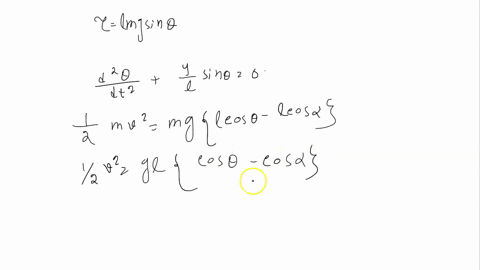 τ = lmg sinθ
d²θ/dt² + g/l sinθ = 0
1/2 mv² = mg { lcosθ - lcosα }
1/2 v² = gl { cosθ - cosα }